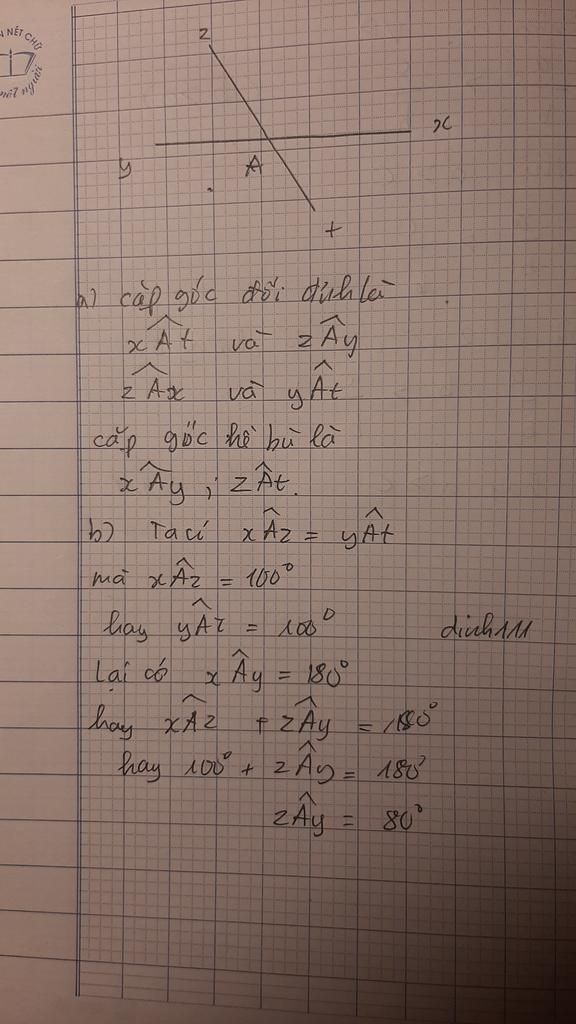 N NÉT CHỮ
z
x
y
A
t
a) cặp góc đối đỉnh là
xÂt và zÂy
zÂx và yÂt
cặp góc kề bù là
xÂy ; zÂt.
b) Ta có xÂz = yÂt
mà xÂz = 100°
hay yÂt = 100°
Lại có xÂy = 180°
hay xÂz + zÂy = 180°
hay 100° + zÂy = 180°
zÂy = 80°